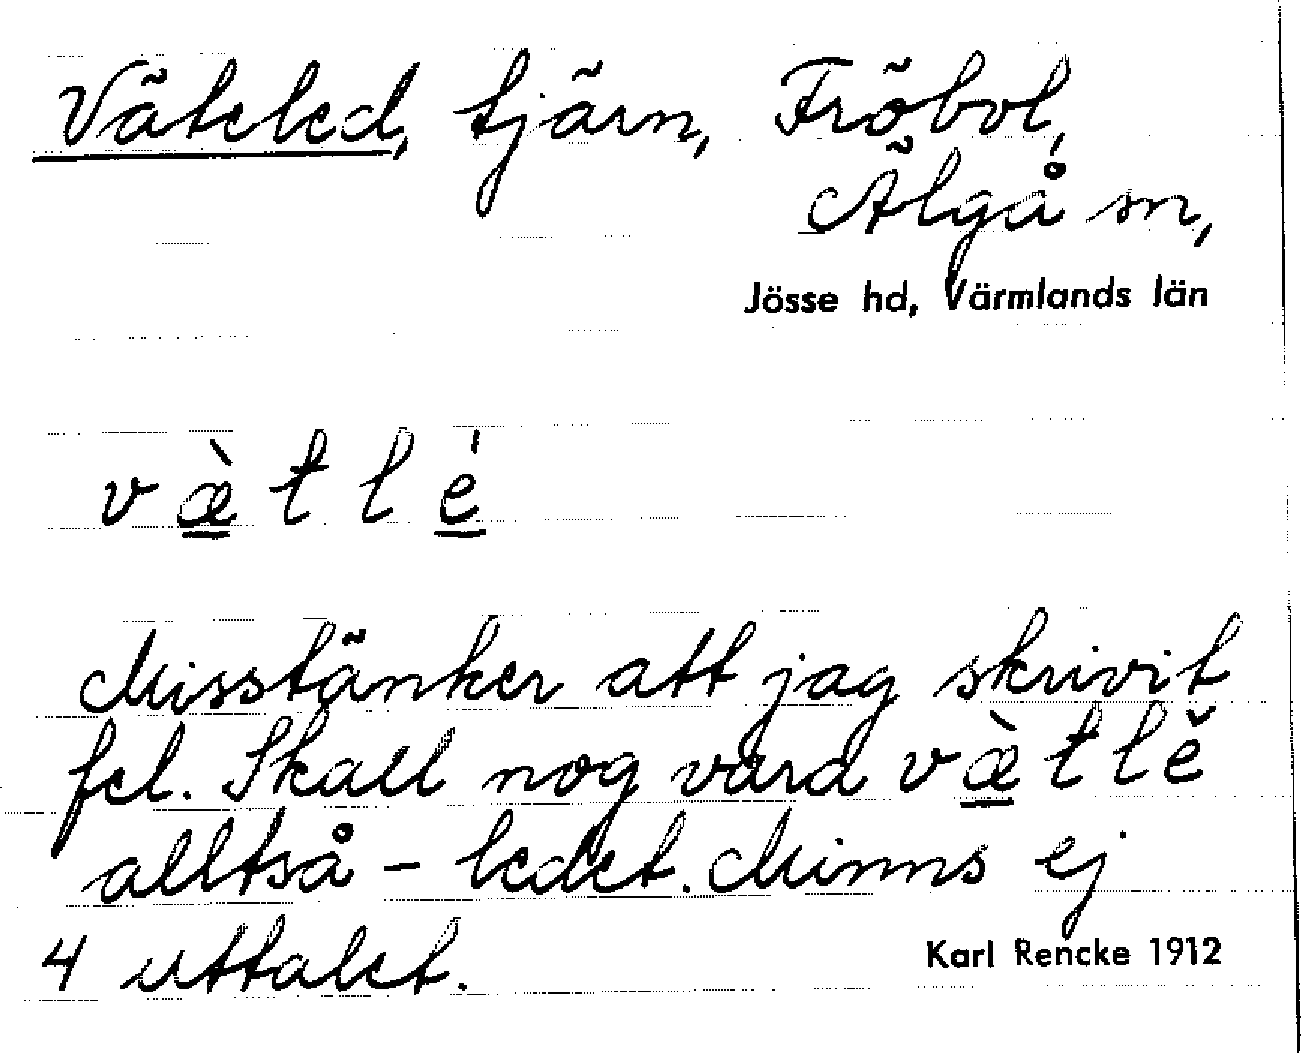 Väteled, tjärn, Fröbol,
Älgå sn,
Jösse hd, Värmlands län
v æ̀ t l é
Misstänker att jag skrivit
fel. Skall nog vara v æ̀ t l ĕ
alltså - ledet. Minns ej
4 uttalet.
Karl Rencke 1912